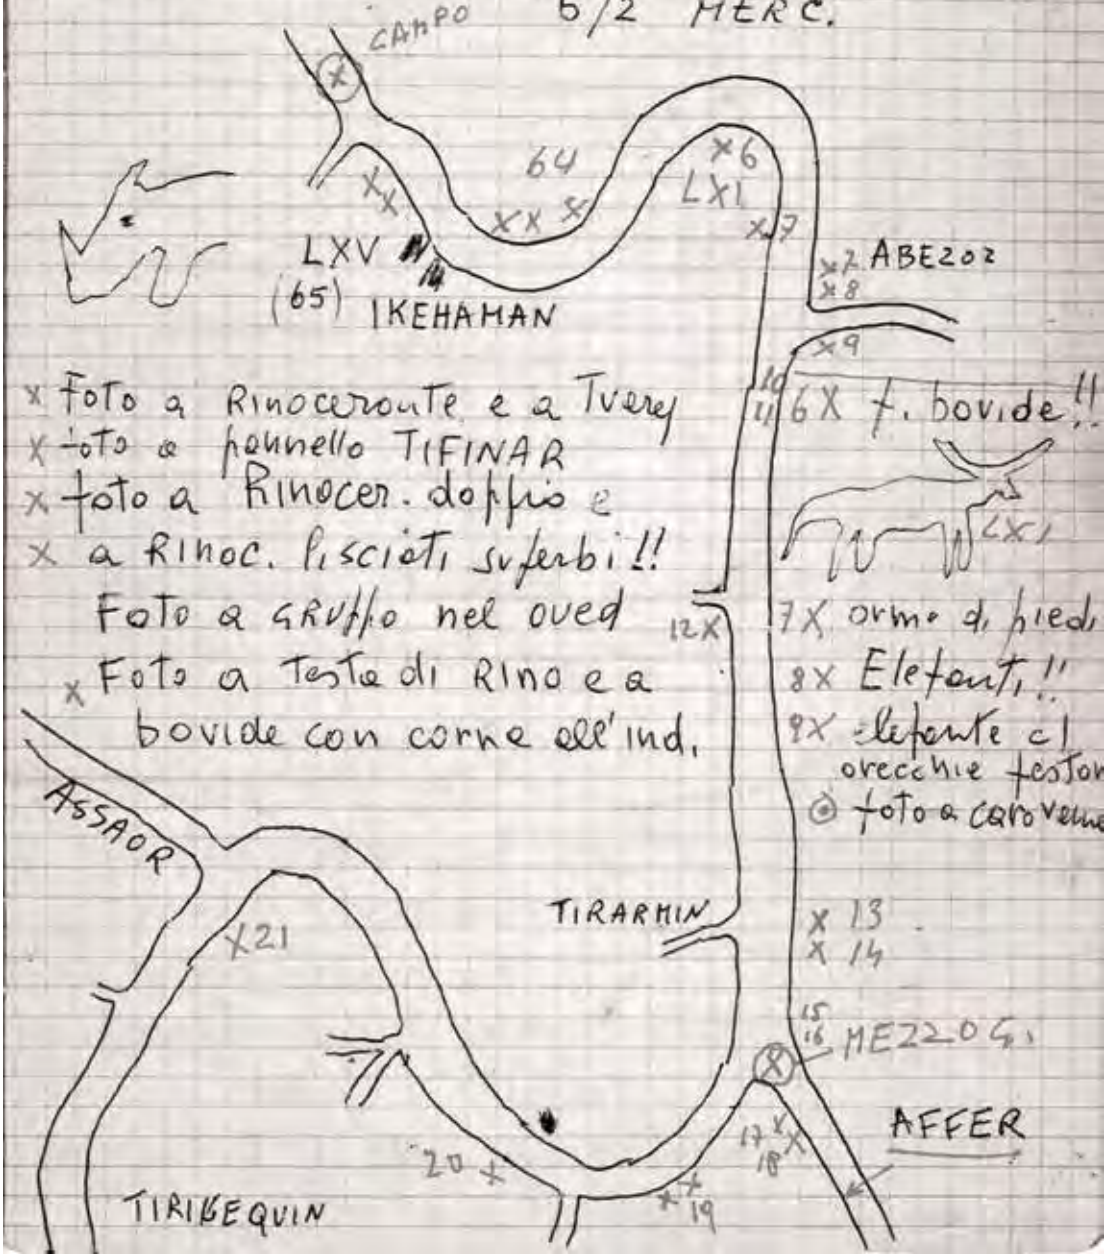 CAMPO
5/2 MERC.
64
x6
LXI
x7
LXV
(65)
IKEHAMAN
x7 ABEZOZ
x8
x9
10
11
x Foto a Rinoceronte e a Tuareg
x foto a pannello TIFINAR
x foto a Rinocer. doppio e
x a Rinoc. lisciati superbi!!
Foto a GRUPPO nel oued
x Foto a Testa di Rino e a
bovide con corna all'ind.
6X f. bovide!!
LXI
12X
7X orme di piedi
8X Elefanti!!
9X elefante c/
orecchie feston
foto a carovana
ASSAOR
x21
TIRARMIN
x 13
x 14
15
16
MEZZOG.
17 x
18 x
AFFER
20 x
x x
19
TIRIBEQUIN